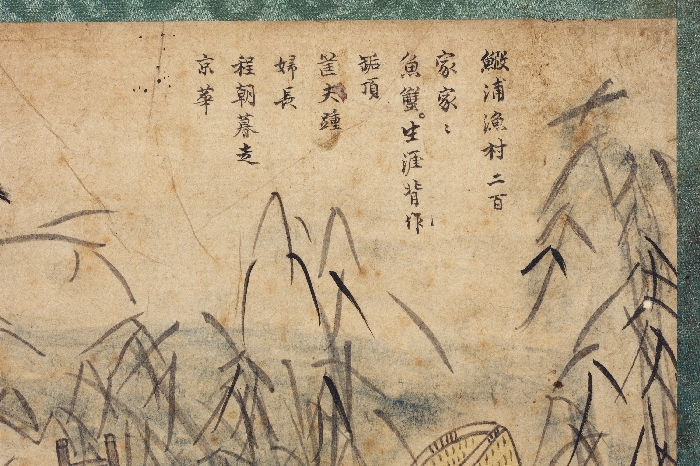 鰕浦漁村二百
家家〻
魚蟹。生涯背作
缿頂
筐夫踵
婦長
程朝暮走
京華